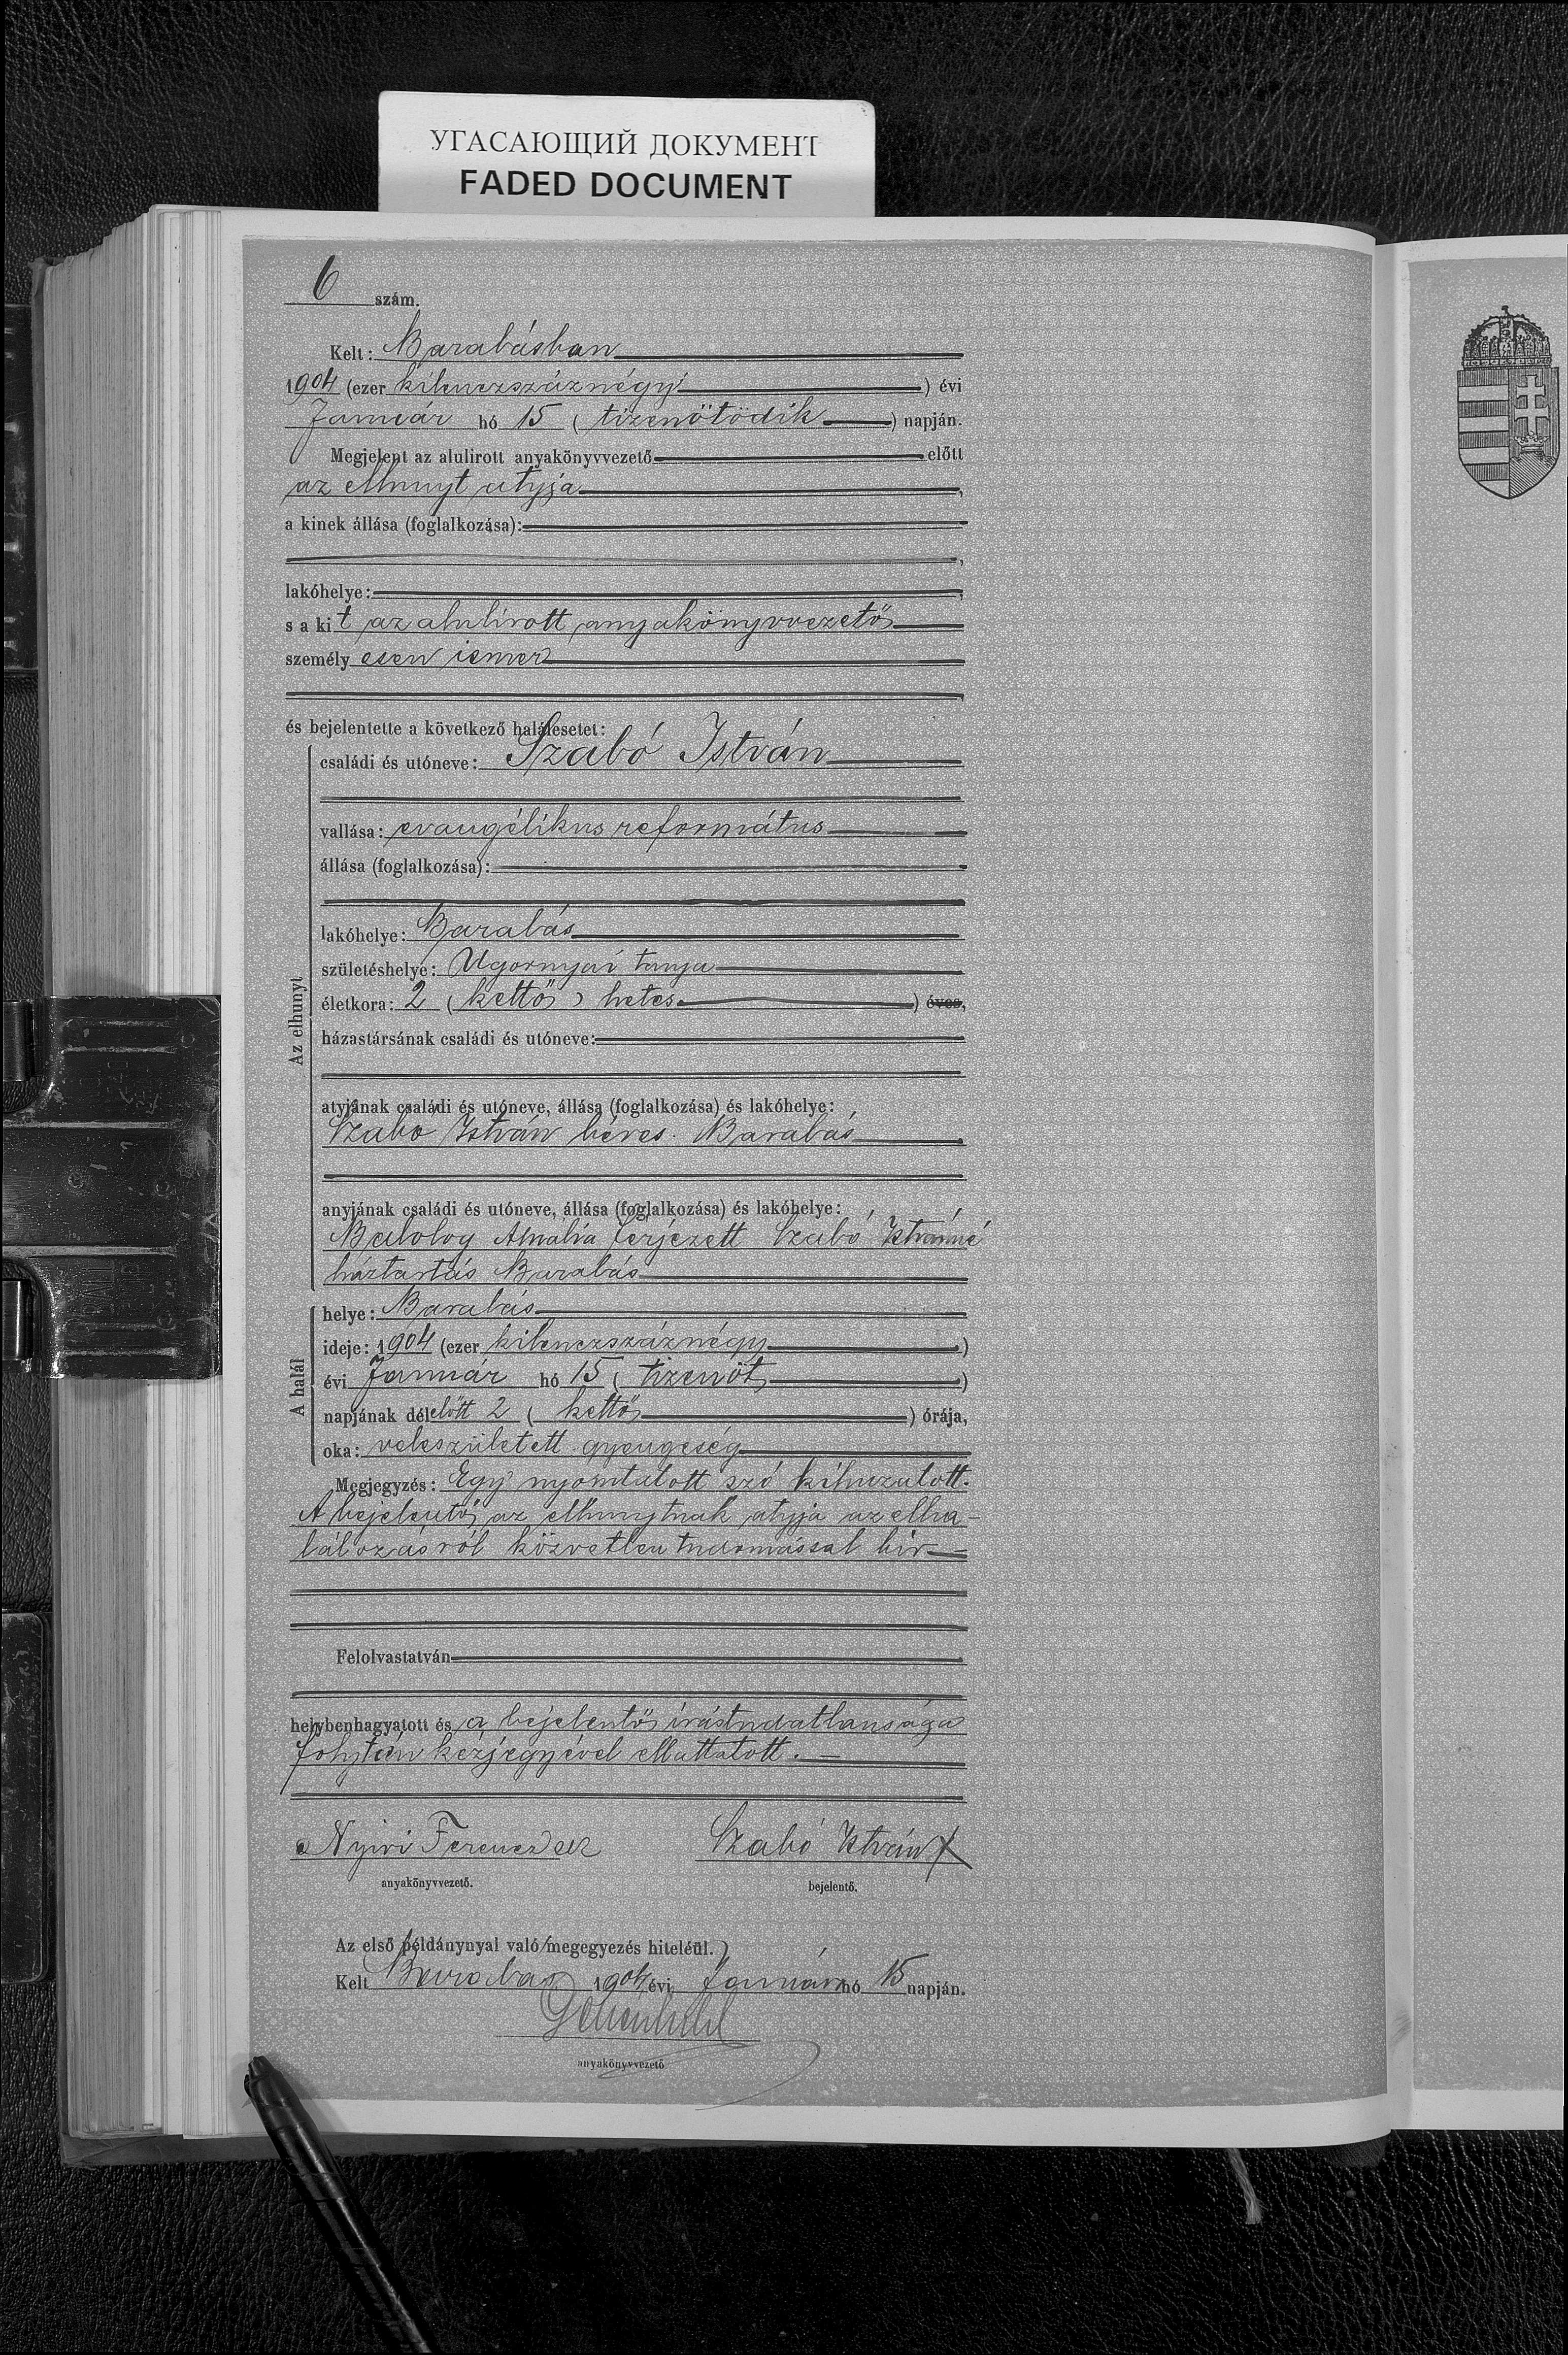 УГАСАЮЩИЙ ДОКУМЕНТ
FADED DOCUMENT
6 szám.
Kelt: Barabásban
1904 (ezer kilenczszáznégy) évi
Január hó 15 (tizenötödik) napján.
Megjelent az alulirott anyakönyvvezető előtt
az elhunyt atyja,
a kinek állása (foglalkozása):
lakóhelye:
s a kit az alulirott anyakönyvvezető
személyesen ismer
és bejelentette a következő halálesetet:
Az elhunyt
családi és utóneve: Szabó István
vallása: evangélikus református
állása (foglalkozása):
lakóhelye: Barabás
születéshelye: Ugornyai tanya
életkora: 2 (kettő) hetes ) éves,
házastársának családi és utóneve:
atyjának családi és utóneve, állása (foglalkozása) és lakóhelye:
Szabó István béres. Barabás
anyjának családi és utóneve, állása (foglalkozása) és lakóhelye:
Amália férjezett Szabó Istvánné
háztartás Barabás
A halál
helye: Barabás
ideje: 1904 (ezer kilenczszáznégy)
évi Január hó 15 (tizenöt)
napjának délelőtt 2 (kettő) órája,
oka: veleszületett gyengeség
Megjegyzés: Egy nyomtatott szó kihuzatott.
A bejelentő az elhunytnak atyja az elha-
lálozásról közvetlen tudomással bir
Felolvastatván
helybenhagyatott és a bejelentő irástudatlansága
folytán kézjegyével elláttatott.
Nyiri Ferencz
Szabó István X
anyakönyvvezető.
bejelentő.
Az első példánynyal való megegyezés hiteléül.
Kelt Barabás 1904 évi Január hó 15 napján.
anyakönyvvezető